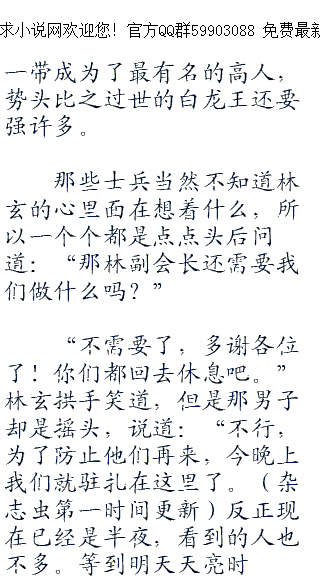 求小说网欢迎您！官方QQ群59903088 免费最新
一带成为了最有名的高人，
势头比之过世的白龙王还要
强许多。
那些士兵当然不知道林
玄的心里面在想着什么，所
以一个个都是点点头后问
道：“那林副会长还需要我
们做什么吗？”
“不需要了，多谢各位
了！你们都回去休息吧。”
林玄拱手笑道，但是那男子
却是摇头，说道：“不行，
为了防止他们再来，今晚上
我们就驻扎在这里了。（杂
志虫第一时间更新）反正现
在已经是半夜，看到的人也
不多。等到明天天亮时